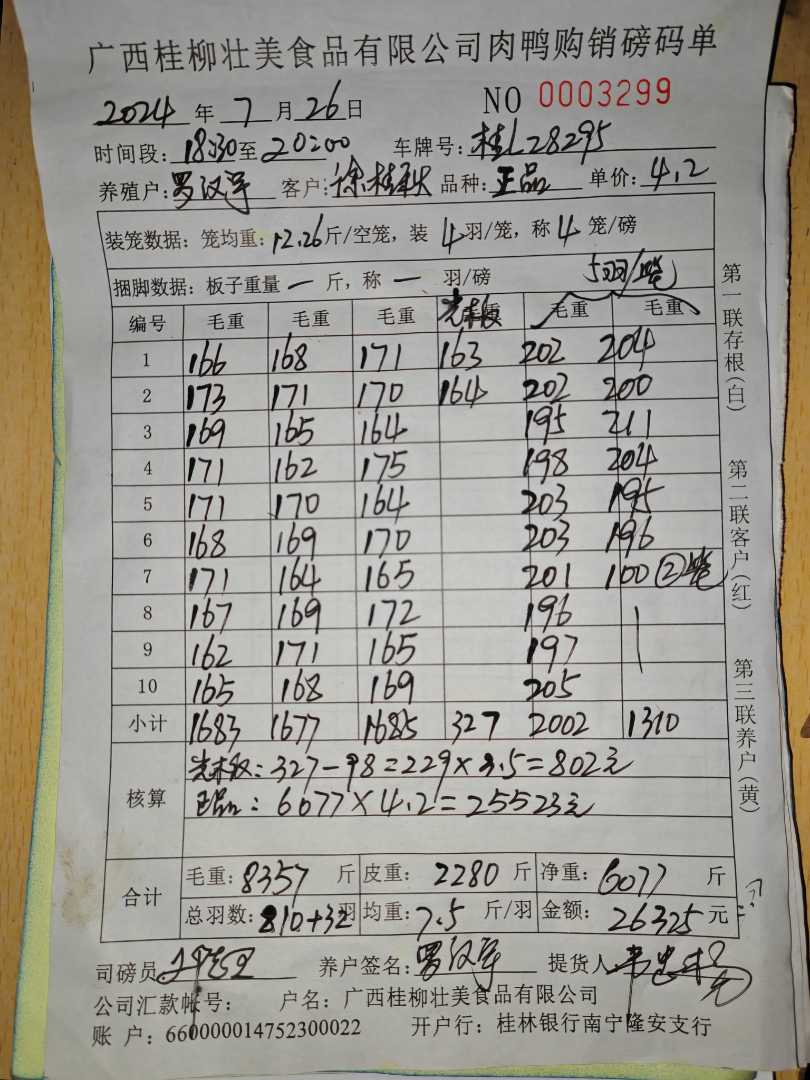 广西桂柳壮美食品有限公司肉鸭购销磅码单
2024 年 7 月 26 日 NO 0003299
时间段: 18:30 至 20:00 车牌号: 桂L28295
养殖户: 罗汉军 客户: 徐桂秋 品种: 正品 单价: 4.2
装笼数据: 笼均重: 12.26 斤/空笼, 装 4 羽/笼, 称 4 笼/磅
捆脚数据: 板子重量 一 斤, 称 一 羽/磅 5羽/笼
编号 毛重 毛重 毛重 毛重 毛重
1 166 168 171 163 202 204
2 173 171 170 164 202 200
3 169 165 164 195 211
4 171 162 175 198 204
5 171 170 164 203 195
6 168 169 170 203 196
7 171 164 165 201 100 ②笼
8 167 169 172 196
9 162 171 165 197
10 165 168 169 205
小计 1683 1677 1685 327 2002 1310
核算
327-98=229×3.5=802元
正品: 6077×4.2=25523元
合计
毛重: 8357 斤 皮重: 2280 斤 净重: 6077 斤
总羽数: 810+32 羽 均重: 7.5 斤/羽 金额: 26325 元
司磅员 养户签名: 罗汉军 提货人
公司汇款帐号: 户名: 广西桂柳壮美食品有限公司
账 户: 660000014752300022 开户行: 桂林银行南宁隆安支行
第一联存根(白)
第二联客户(红)
第三联养户(黄)